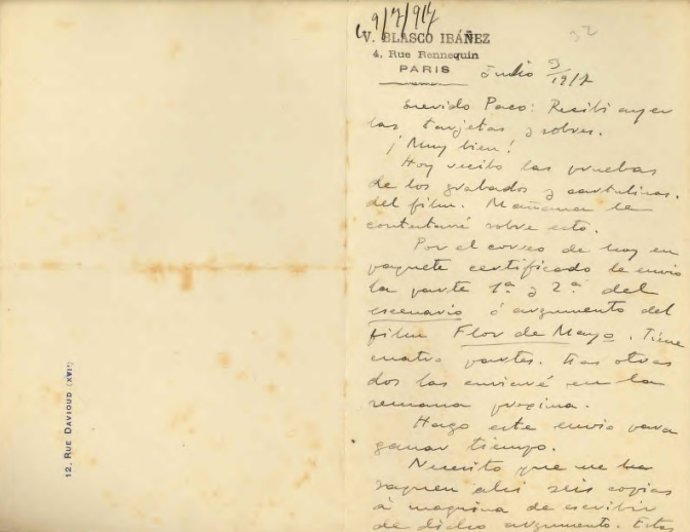 9/7/917
32
V. BLASCO IBÁÑEZ
4, Rue Rennequin
PARIS
Julio 3/1917
Querido Paco: Recibí ayer
las tarjetas y sobres.
¡Muy bien!
Hoy recibo las pruebas
de los grabados y cartulinas.
del film. Mañana le
contestaré sobre esto.
Por el correo de hoy en
paquete certificado le envio
la parte 1ª y 2ª del
escenario ó argumento del
film Flor de Mayo. Tiene
cuatro partes. Las otras
dos las enviaré en la
semana proxima.
Hago este envio para
ganar tiempo.
Necesito que me la
saquen ahi seis copias
á maquina de escribir
de dicho argumento. Estas
12, RUE DAVIOUD (XVIᵉ)